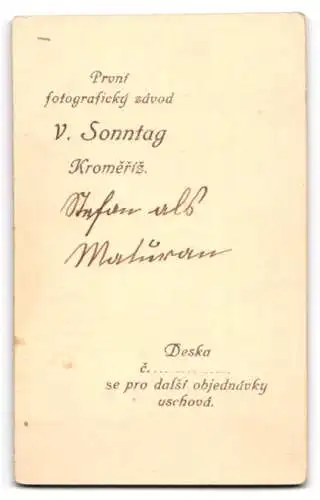 První
fotografický závod
V. Sonntag
Kroměříž.
Stefan als
Maturan
Deska
č. .... ... ... ....
se pro další objednávky
uschová.